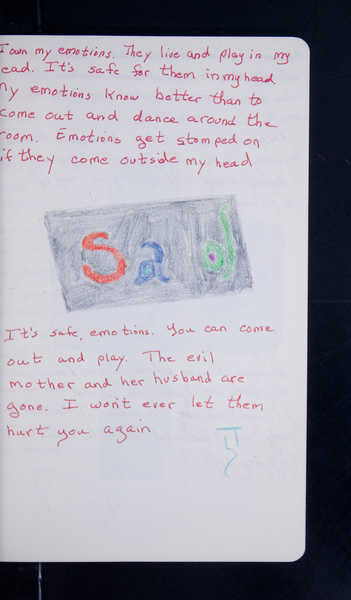 I own my emotions. They live and play in my
ead. It's safe for them in my head.
My emotions know better than to
come out and dance around the
room. Emotions get stomped on
if they come outside my head
Sad
It's safe, emotions. You can come
out and play. The evil
mother and her husband are
gone. I won't ever let them
hurt you again